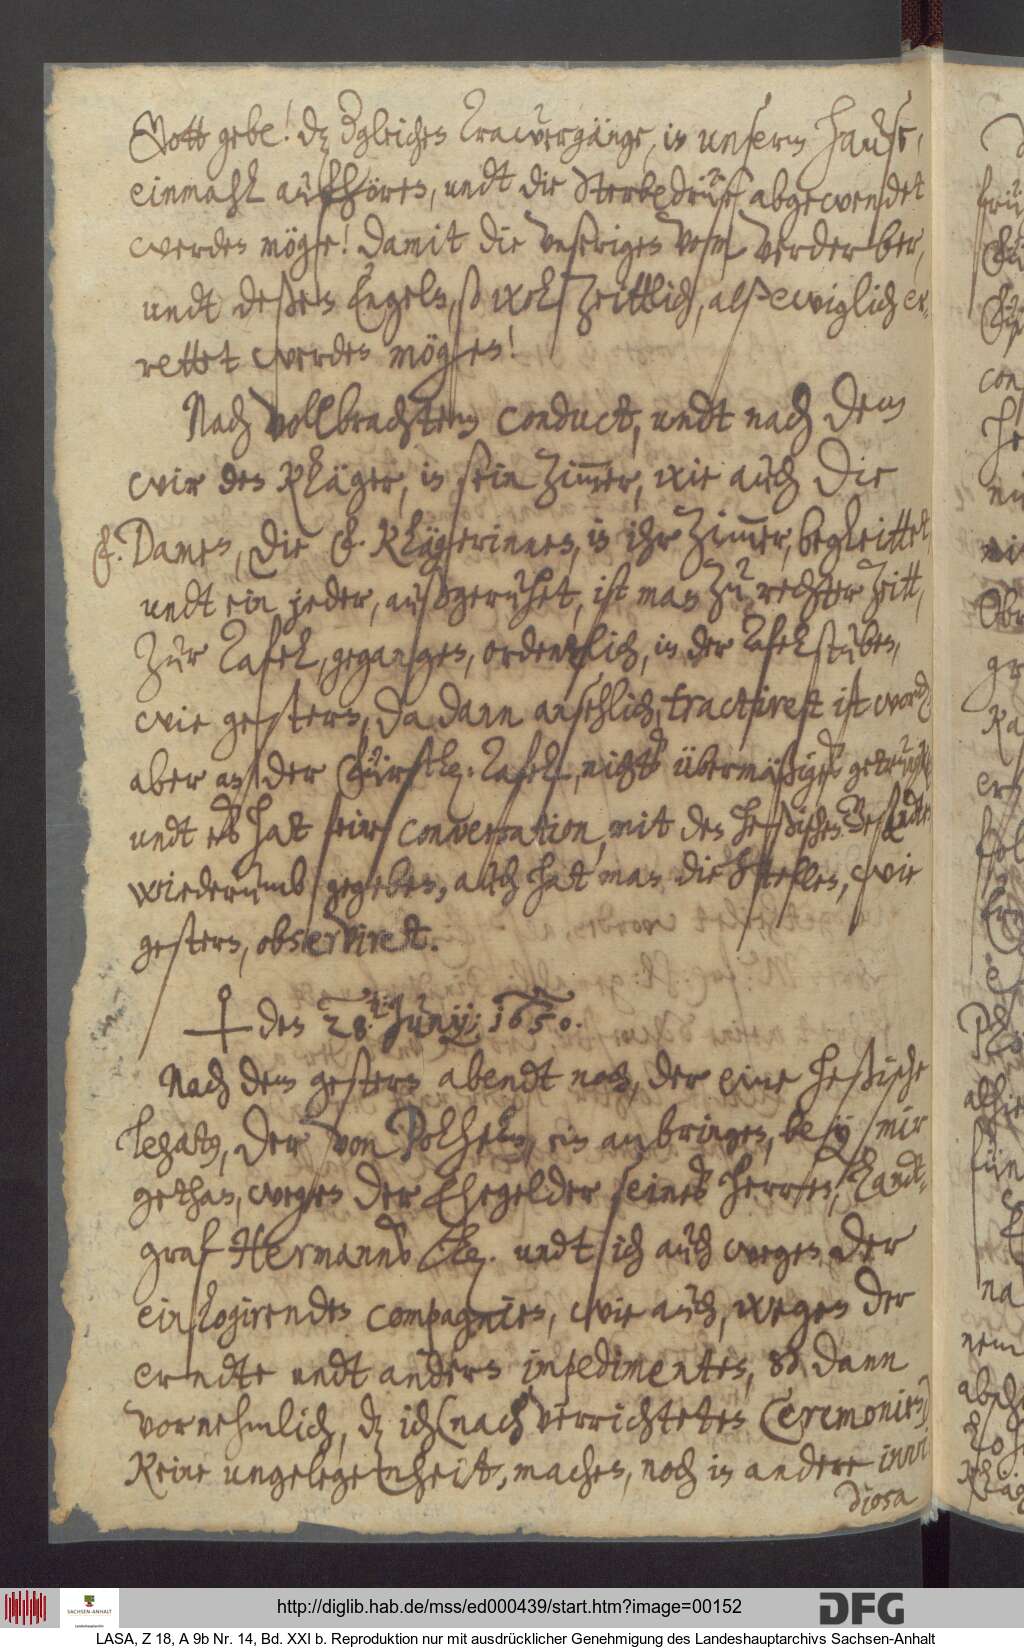 Gott gebe! dz dergleichen Trawergänge, in unserm Hause,
einmahl aufhören, undt die Sterbedrüse abgewendet
werden möge! Damit die Unserigen vom Verderber,
undt deßen Engeln, so wol zeittlich, alß ewiglich er-
rettet werden mögen!
Nach vollbrachtem conduct, undt nach dem
wir den Kläger, in sein Zimmer, wie auch die
F. Damen, die F. Klägerinnen, in ihr Zimmer, begleittet,
undt ein jeder, außgeruhet, ist man zu rechter Zeitt,
Zur Tafel, gegangen, ordentlich, in der Tafelstuben,
wie gestern, da dann ansehlich, tractiret ist word(en)
aber an der Fürstl: Tafel, nichts übermäßiges getruncken
undt es hat feine conversation, mit den Heßischen Gesandten
wiederumb gegeben, auch hat man die Stellen, wie
gestern, observiret.
den 28. Junij; 1650.
Nach dem gestern abendt noch, der eine Heßische
Legatus, der von Polhelm, ein anbringen, bey mir
gethan, wegen der Ehegelder seines Herren, Landt-
graf Hermanns undt ich auch wegen der
einlogirenden compagnien, wie auch, wegen der
erndte undt andern impedimenten, so dann
vornehmlich, dz ich (nach verrichteten Ceremonien)
Keine ungelegenheit, machen, noch in andere invi
diosa
http://diglib.hab.de/mss/ed000439/start.htm?image=00152
SACHSEN-ANHALT
Landesarchiv
DFG
LASA, Z 18, A 9b Nr. 14, Bd. XXI b. Reproduktion nur mit ausdrücklicher Genehmigung des Landeshauptarchivs Sachsen-Anhalt